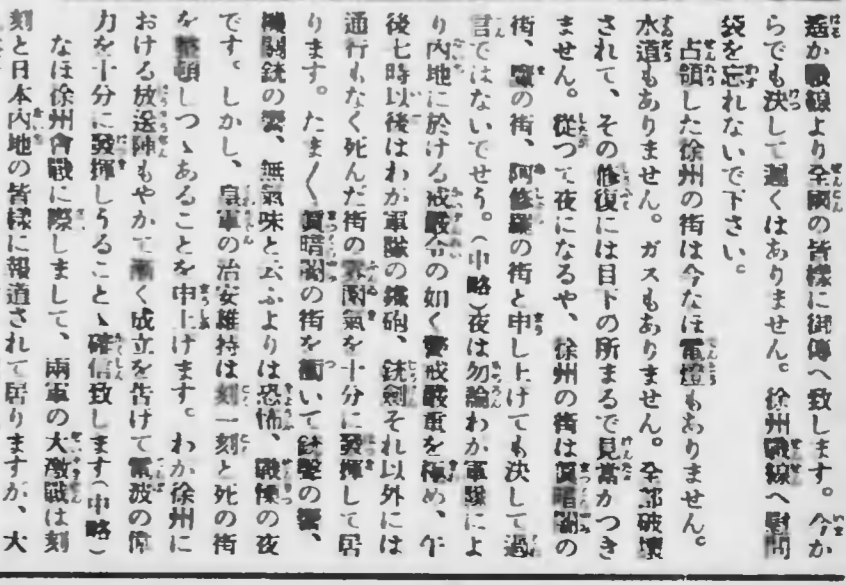 遙か戰線より全國の皆樣に御傳へ致します。今か
らでも決して遲くはありません。徐州戰線へ慰問
袋を忘れないで下さい。
占領した徐州の街は今なほ電燈もありません。
水道もありません。ガスもありません。全部破壞
されて、その修復には目下の所まるで見當がつき
ません。從つて夜になるや、徐州の街は眞暗闇の
街、魔の街、阿修羅の街と申し上げても決して過
言ではないでせう。(中略)夜は勿論わが軍隊によ
り内地に於ける戒嚴令の如く警戒嚴重を極め、午
後七時以後はわが軍隊の鐵砲、銃劍それ以外には
通行もなく死んだ街の雰圍氣を十分に發揮して居
ります。たま〱眞暗闇の街を衝いて銃聲の響、
機關銃の響、無氣味と云ふよりは恐怖、戰慄の夜
です。しかし、皇軍の治安維持は刻一刻と死の街
を整頓しつゝあることを申上げます。わが徐州に
おける放送陣もやがて漸く成立を告げて電波の偉
力を十分に發揮しうることゝ確信致します(中略)
なほ徐州會戰に際しまして、兩軍の大激戰は刻
刻と日本内地の皆樣に報道されて居りますが、大